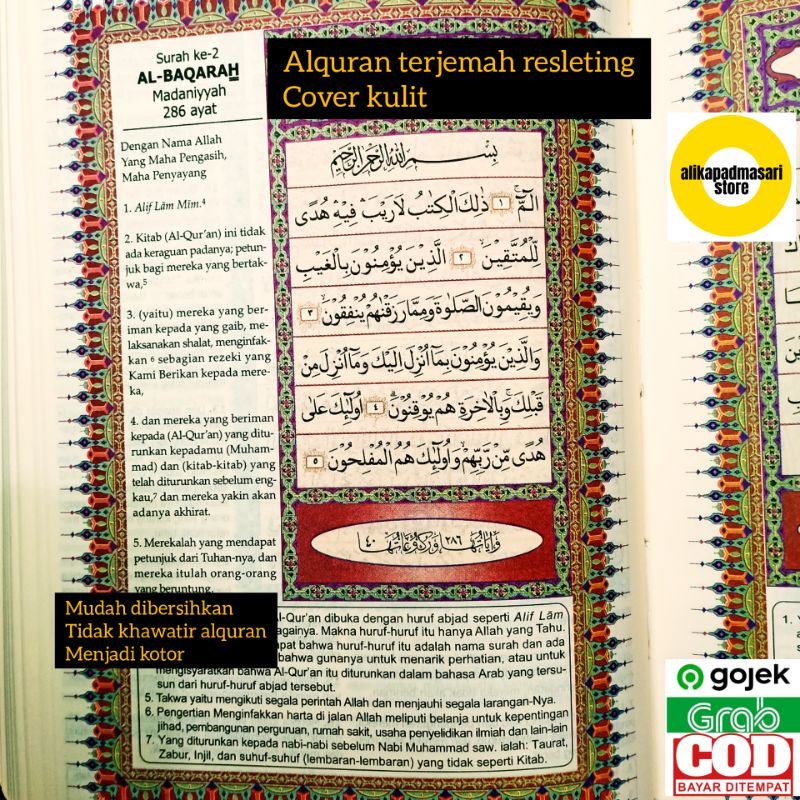 Alquran terjemah resleting
Cover kulit
alikapadmasari
store
Surah ke-2
AL-BAQARAH
Madaniyyah
286 ayat
Dengan Nama Allah
Yang Maha Pengasih,
Maha Penyayang
1. Alif Lâm Mîm.⁴
2. Kitab (Al-Qur'an) ini tidak
ada keraguan padanya; petun-
juk bagi mereka yang bertak-
wa,⁵
3. (yaitu) mereka yang ber-
iman kepada yang gaib, me-
laksanakan shalat, menginfak-
kan ⁶ sebagian rezeki yang
Kami Berikan kepada mere-
ka,
4. dan mereka yang beriman
kepada (Al-Qur'an) yang ditu-
runkan kepadamu (Muham-
mad) dan (kitab-kitab) yang
telah diturunkan sebelum eng-
kau,⁷ dan mereka yakin akan
adanya akhirat.
5. Merekalah yang mendapat
petunjuk dari Tuhan-nya, dan
mereka itulah orang-orang
yang beruntung.
بِسْمِ اللّٰهِ الرَّحْمٰنِ الرَّحِيْمِ
الۤمّۤ ۚ ١ ذٰلِكَ الْكِتٰبُ لَا رَيْبَ ۛ فِيْهِ ۛ هُدًى
لِّلْمُتَّقِيْنَ ۙ ٢ الَّذِيْنَ يُؤْمِنُوْنَ بِالْغَيْبِ
وَيُقِيْمُوْنَ الصَّلٰوةَ وَمِمَّا رَزَقْنٰهُمْ يُنْفِقُوْنَ ۙ ٣
وَالَّذِيْنَ يُؤْمِنُوْنَ بِمَآ اُنْزِلَ اِلَيْكَ وَمَآ اُنْزِلَ مِنْ
قَبْلِكَ ۚ وَبِالْاٰخِرَةِ هُمْ يُوْقِنُوْنَ ۗ ٤ اُولٰۤىِٕكَ عَلٰى
هُدًى مِّنْ رَّبِّهِمْ ۙ وَاُولٰۤىِٕكَ هُمُ الْمُفْلِحُوْنَ ٥
وَاٰيَاتُهَا ٢٨٦ وَرُكُوْعَاتُهَا ٤٠
Mudah dibersihkan
Tidak khawatir alquran
Menjadi kotor
Al-Qur'an dibuka dengan huruf abjad seperti Alif Lâm
againya. Makna huruf-huruf itu hanya Allah yang Tahu.
pat bahwa huruf-huruf itu adalah nama surah dan ada
bahwa gunanya untuk menarik perhatian, atau untuk
mengisyaratkan bahwa Al-Qur'an itu diturunkan dalam bahasa Arab yang tersu-
sun dari huruf-huruf abjad tersebut.
5. Takwa yaitu mengikuti segala perintah Allah dan menjauhi segala larangan-Nya.
6. Pengertian Menginfakkan harta di jalan Allah meliputi belanja untuk kepentingan
jihad, pembangunan perguruan, rumah sakit, usaha penyelidikan ilmiah dan lain-lain
7. Yang diturunkan kepada nabi-nabi sebelum Nabi Muhammad saw. ialah: Taurat,
Zabur, Injil, dan suhuf-suhuf (lembaran-lembaran) yang tidak seperti Kitab.
gojek
Grab
COD
BAYAR DITEMPAT